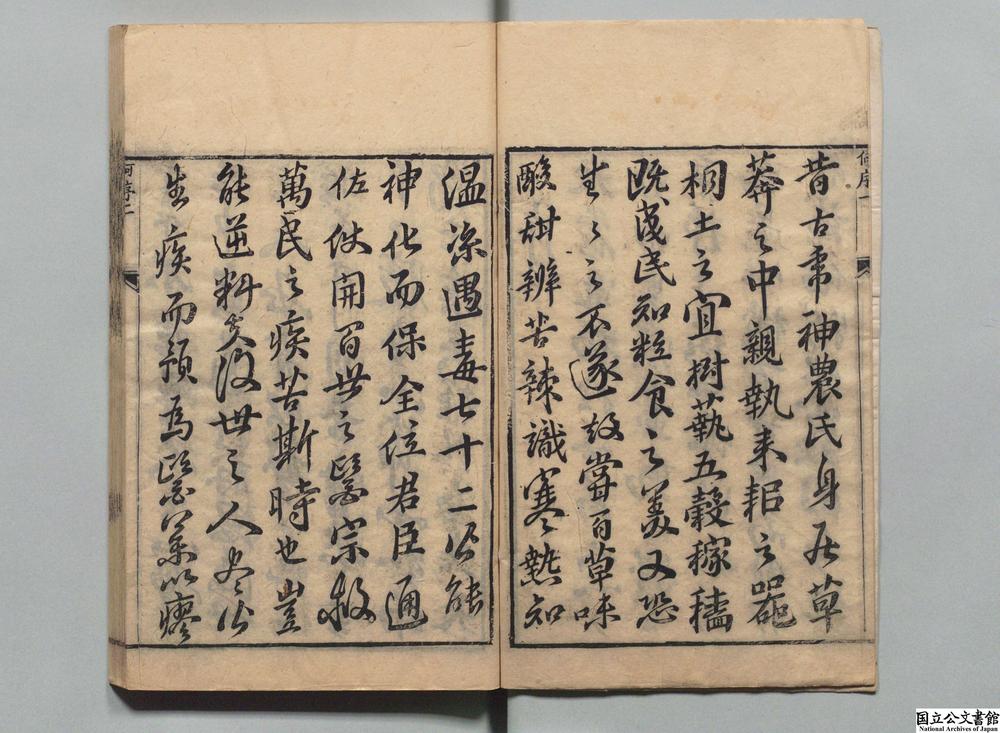 昔古帝神農氏身居草
莽之中親執耒耜之器
相土之宜樹藝五穀稼穡
既成民知粒食之美又恐
生〻之不遂故嘗百草味
酸甜辨苦辣識寒熱知
温涼遇毒七十二公能
神化而保全位君臣通
佐使開百世之醫宗救
萬民之疾苦斯時也豈
能逆料矣後世之人尽代
生疾而預為醫藥以瘳
何序一
何序二
国立公文書館
National Archives of Japan